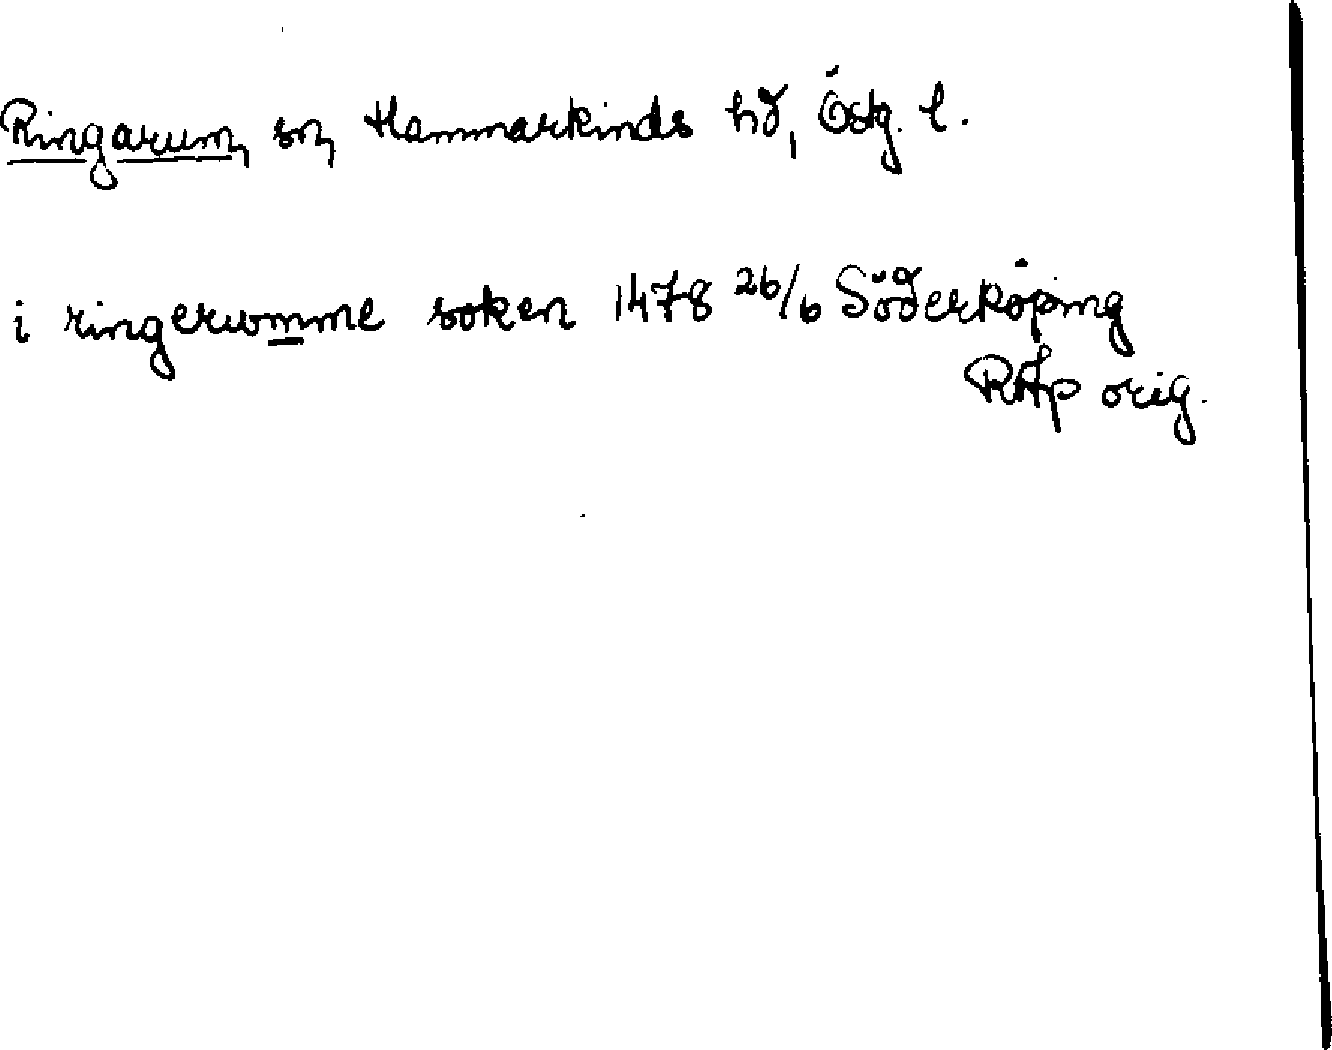 Ringarum, sn, Hammarkinds hd, Östg. l.
i ringerwmme soken 1478 26/6 Söderköping
RAp orig.